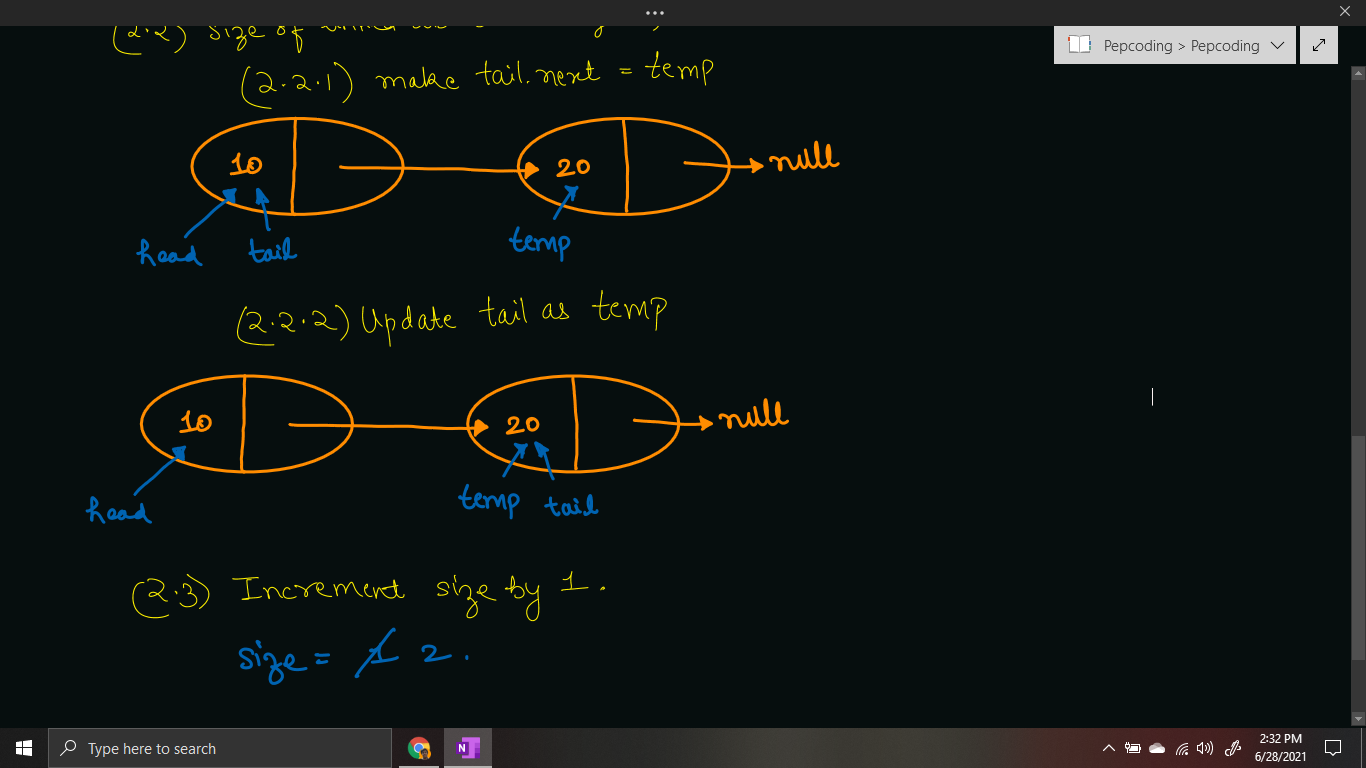 (2.2) size of
Pepcoding > Pepcoding
(2.2.1) make tail.next = temp
10 20 null
head tail temp
(2.2.2) Update tail as temp
10 20 null
head temp tail
(2.3) Increment size by 1.
size = 1 2.
Type here to search
N
2:32 PM
6/28/2021